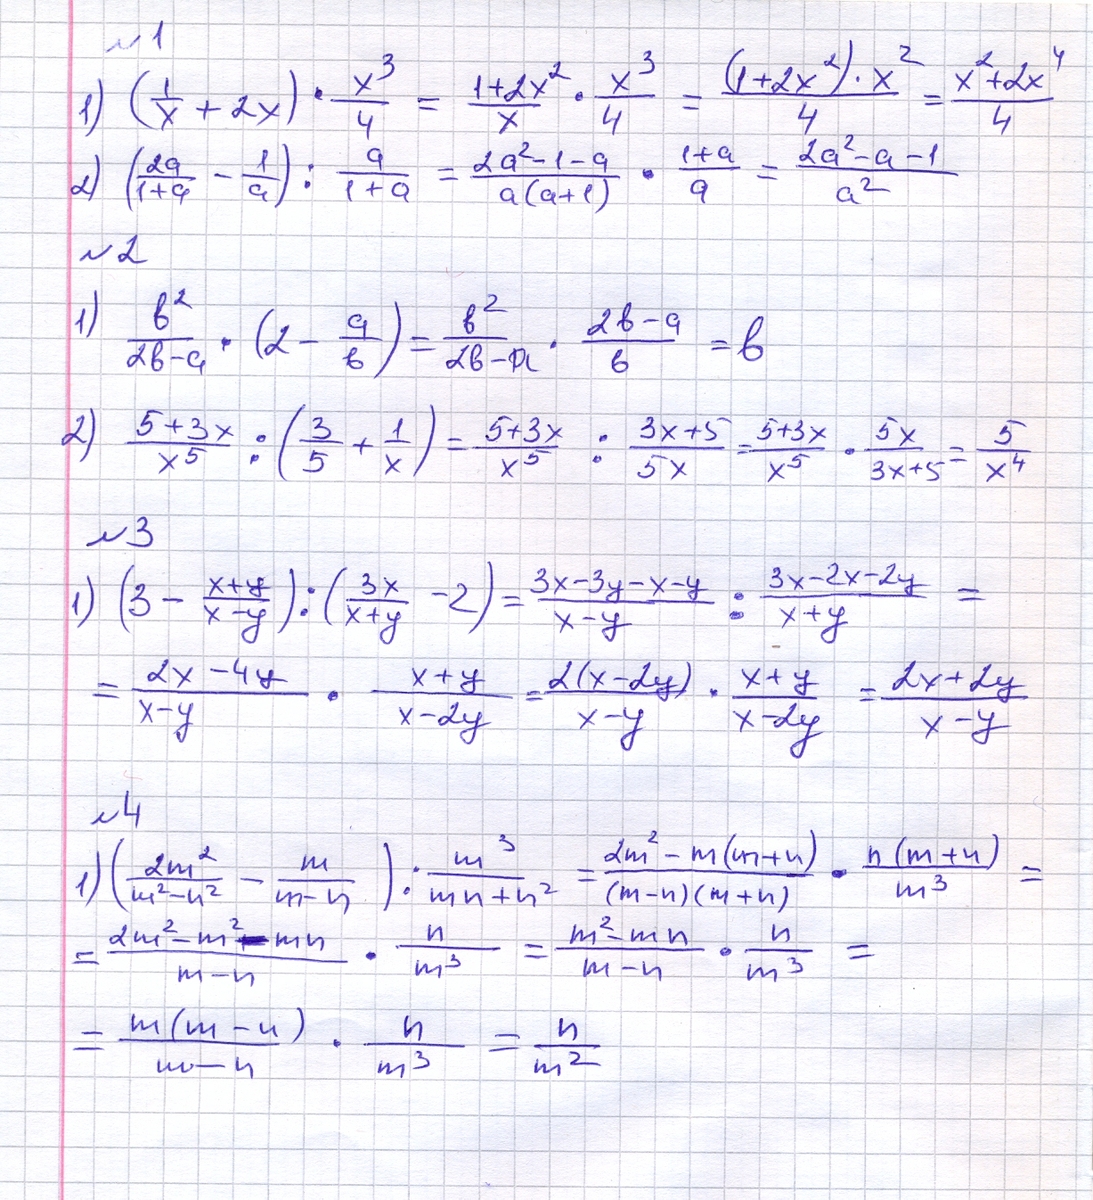 №1
1) (1/x + 2x) · x³/4 = (1+2x²)/x · x³/4 = ((1+2x²)·x²)/4 = (x²+2x⁴)/4
2) (2a/(1+a) − 1/a) : a/(1+a) = (2a²−1−a)/(a(a+1)) · (1+a)/a = (2a²−a−1)/a²
№2
1) в²/(2в−a) · (2 − a/в) = в²/(2в−a) · (2в−a)/в = в
2) (5+3x)/x⁵ : (3/5 + 1/x) = (5+3x)/x⁵ : (3x+5)/5x = (5+3x)/x⁵ · 5x/(3x+5) = 5/x⁴
№3
1) (3 − (x+y)/(x−y)) : (3x/(x+y) − 2) = (3x−3y−x−y)/(x−y) : (3x−2x−2y)/(x+y) =
= (2x−4y)/(x−y) · (x+y)/(x−2y) = 2(x−2y)/(x−y) · (x+y)/(x−2y) = (2x+2y)/(x−y)
№4
1) (2m²/(m²−n²) − m/(m−n)) : m³/(mn+n²) = (2m²−m(m+n))/((m−n)(m+n)) · n(m+n)/m³ =
= (2m²−m²−mn)/(m−n) · n/m³ = (m²−mn)/(m−n) · n/m³ =
= m(m−n)/(m−n) · n/m³ = n/m²